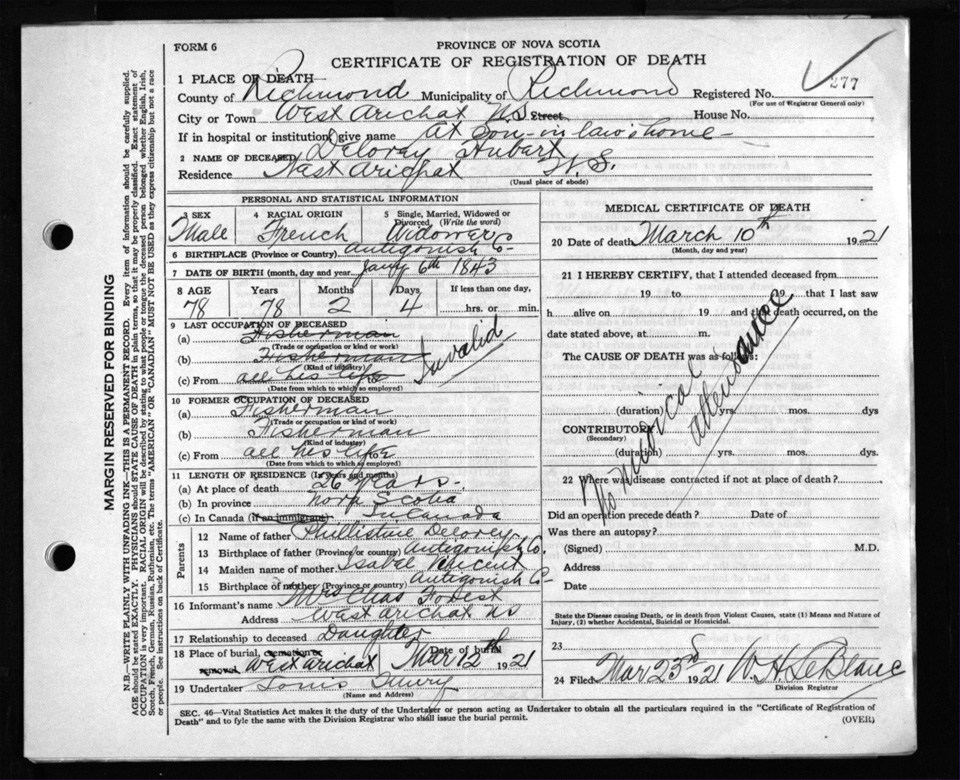 FORM 6
PROVINCE OF NOVA SCOTIA
CERTIFICATE OF REGISTRATION OF DEATH
277
1 PLACE OF DEATH—
County of Richmond Municipality of Richmond Registered No.
(For use of Registrar General only)
City or Town West Arichat N.S. Street House No.
If in hospital or institution give name At Son-in law's home—
2 NAME OF DECEASED Delorey Hubert
Residence West Arichat N.S.
(Usual place of abode)
PERSONAL AND STATISTICAL INFORMATION
3 SEX 4 RACIAL ORIGIN 5 Single, Married, Widowed or Divorced, (Write the word)
Male French Widower
6 BIRTHPLACE (Province or Country) Antigonish Co—
7 DATE OF BIRTH (month, day and year) Jany 6th 1843
8 AGE Years Months Days If less than one day,
78 78 2 4 hrs. or min.
9 LAST OCCUPATION OF DECEASED
(a) Fisherman
(Trade or occupation or kind or work)
(b) Fisherman
(Kind of industry)
(c) From all his life
(Date from which to which so employed)
Invalid
10 FORMER OCCUPATION OF DECEASED
(a) Fisherman
(Trade or occupation or kind or work)
(b) Fisherman
(Kind of industry)
(c) From all his life
(Date from which to which so employed)
11 LENGTH OF RESIDENCE (In years and months)
(a) At place of death 26 years—
(b) In province Nova Scotia
(c) In Canada (if an immigrant) In Canada
Parents
12 Name of father Delorey
13 Birthplace of father (Province or country) Antigonish Co.
14 Maiden name of mother Isabel
15 Birthplace of mother (Province or country) Antigonish Co—
16 Informant's name Mrs Chas Forest
Address West Arichat NS
17 Relationship to deceased Daughter
18 Place of burial, cremation or removal West Arichat
Date of burial Mar 12th 1921
19 Undertaker Louis
(Name and Address)
MEDICAL CERTIFICATE OF DEATH
20 Date of death March 10th 1921
(Month, day and year)
21 I HEREBY CERTIFY, that I attended deceased from
19 to 19 that I last saw
h alive on 19 and that death occurred, on
date stated above, at m.
The CAUSE OF DEATH was as follows:
No medical attendance
(duration) yrs. mos. dys
CONTRIBUTORY
(Secondary)
(duration) yrs. mos. dys.
22 Where was disease contracted if not at place of death?
Did an operation precede death? Date of
Was there an autopsy?
(Signed) M.D.
Address
Date
State the Disease causing Death, or in death from Violent Causes, state (1) Means and Nature of
Injury, (2) whether Accidental, Suicidal or Homicidal.
23
24 Filed Mar 23rd 1921 W H LeBlanc
Division Registrar
SEC. 46—Vital Statistics Act makes it the duty of the Undertaker or person acting as Undertaker to obtain all the particulars required in the "Certificate of Registration of
Death" and to fyle the same with the Division Registrar who shall issue the burial permit.
(OVER)
MARGIN RESERVED FOR BINDING
N.B.—WRITE PLAINLY WITH UNFADING INK—THIS IS A PERMANENT RECORD. Every item of information should be carefully supplied.
AGE should be stated EXACTLY. PHYSICIANS should STATE CAUSE OF DEATH in plain terms, so that it may be properly classified. Exact statement of
OCCUPATION is very important. RACIAL ORIGIN will be described by stating to what people or tongue the deceased person belonged whether English, Irish,
Scotch, French, German, Russian, Ruthenian, etc. The terms "AMERICAN" OR "CANADIAN" MUST NOT BE USED as they express citizenship but not a race
or people. See instructions on back of Certificate.